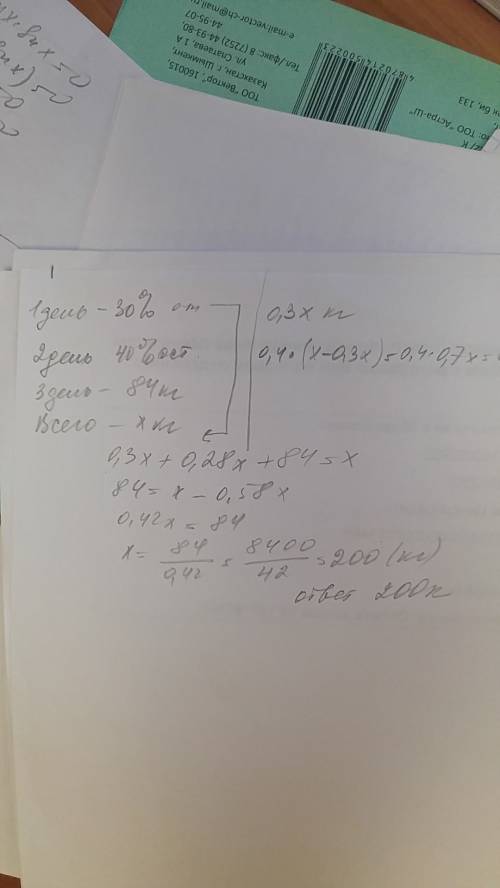 4870214500223
ТОО "Вектор", 160015,
Казахстан, г. Шымкент,
ул. Спатаева, 1 А
Тел./факс: 8 (7252) 44-93-80,
44-95-07
e-mail:vector-ch@mail.ru
ТОО "Астра-Ш"
би, 133
1
1 день – 30% от
0,3x кг
2 день 40% ост.
0,4 · (x – 0,3x) = 0,4 · 0,7x =
3 день – 84 кг
Всего – x кг
0,3x + 0,28x + 84 = x
84 = x – 0,58x
0,42x = 84
x = 84/0,42 = 8400/42 = 200 (кг)
ответ 200к